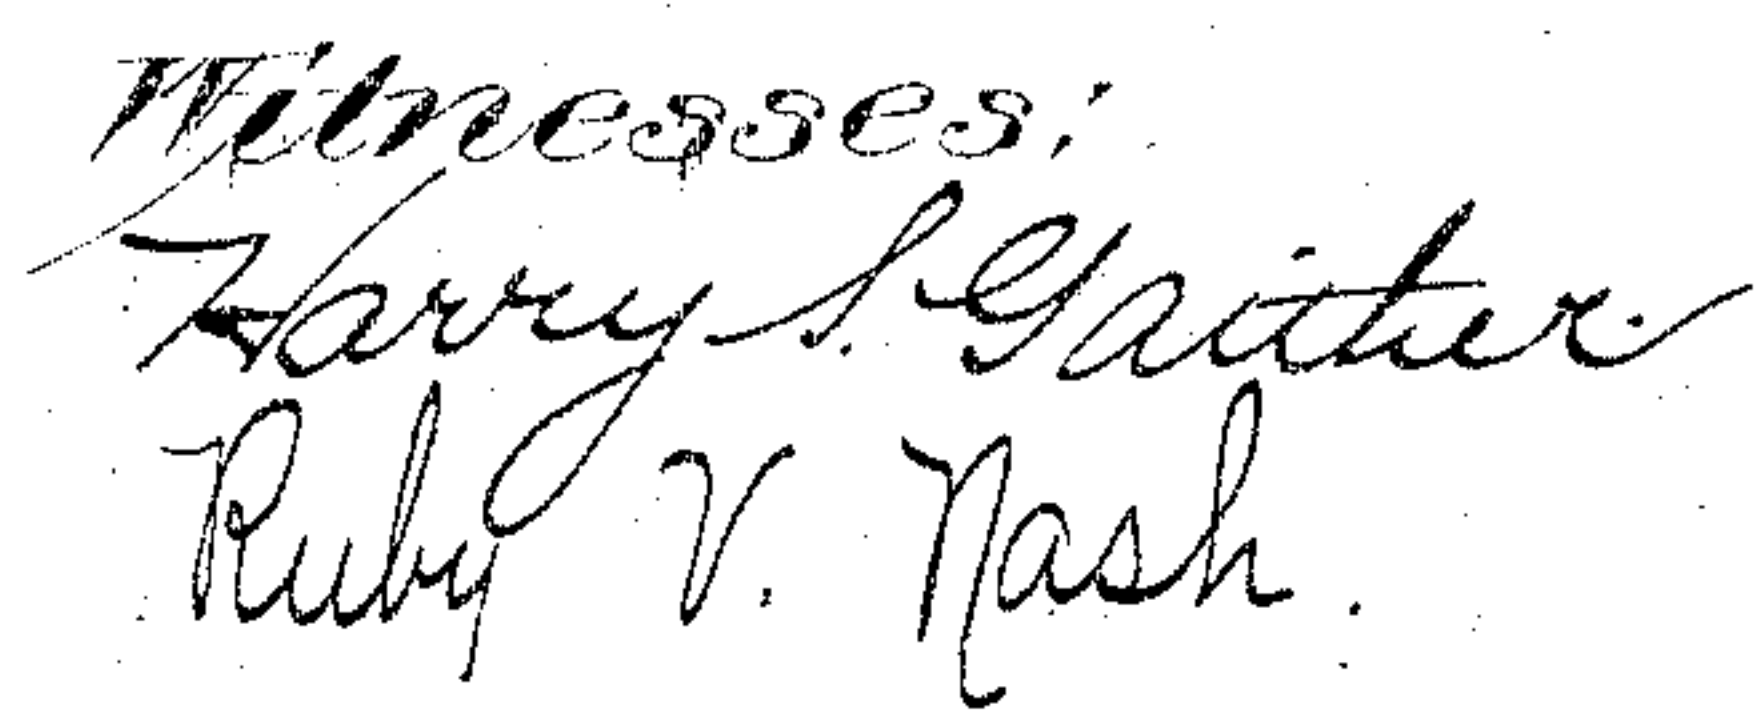 Witnesses:
Harry S. Gaither.
Ruby V. Nash.